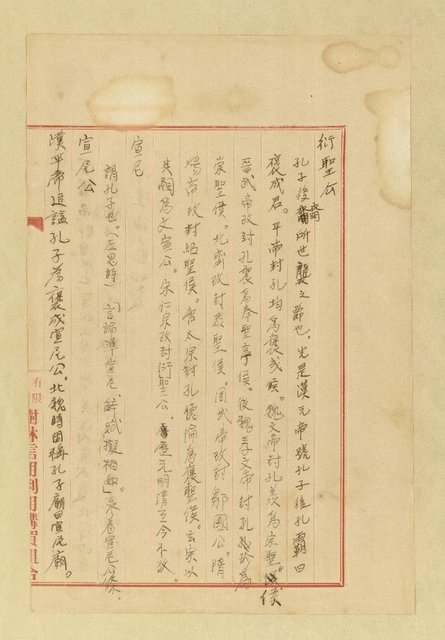 衍聖公
孔子後裔所世襲之爵也。先是漢元帝號孔子後孔霸曰
褒成君。平帝封孔均為褒成侯。魏文帝封孔羨為宗聖侯
晉武帝改封孔襲為奉聖亭侯。後魏孝文帝封孔珍為
崇聖侯。北齊改封恭聖侯。周武帝改封鄒國公。隋
煬帝改封紹聖侯。唐太宗封孔德倫為褒聖侯。玄宗以
其嗣為文宣公。宋仁宗改封衍聖公。歷元明清至今不改
宣尼
謂孔子也。（左思詩）「言論準宣尼，辭賦擬相如」
宣尼公
漢平帝追謚孔子為褒成宣尼公。北魏時因稱孔子廟曰宣尼廟。
有限
樹林信用利用購買組合